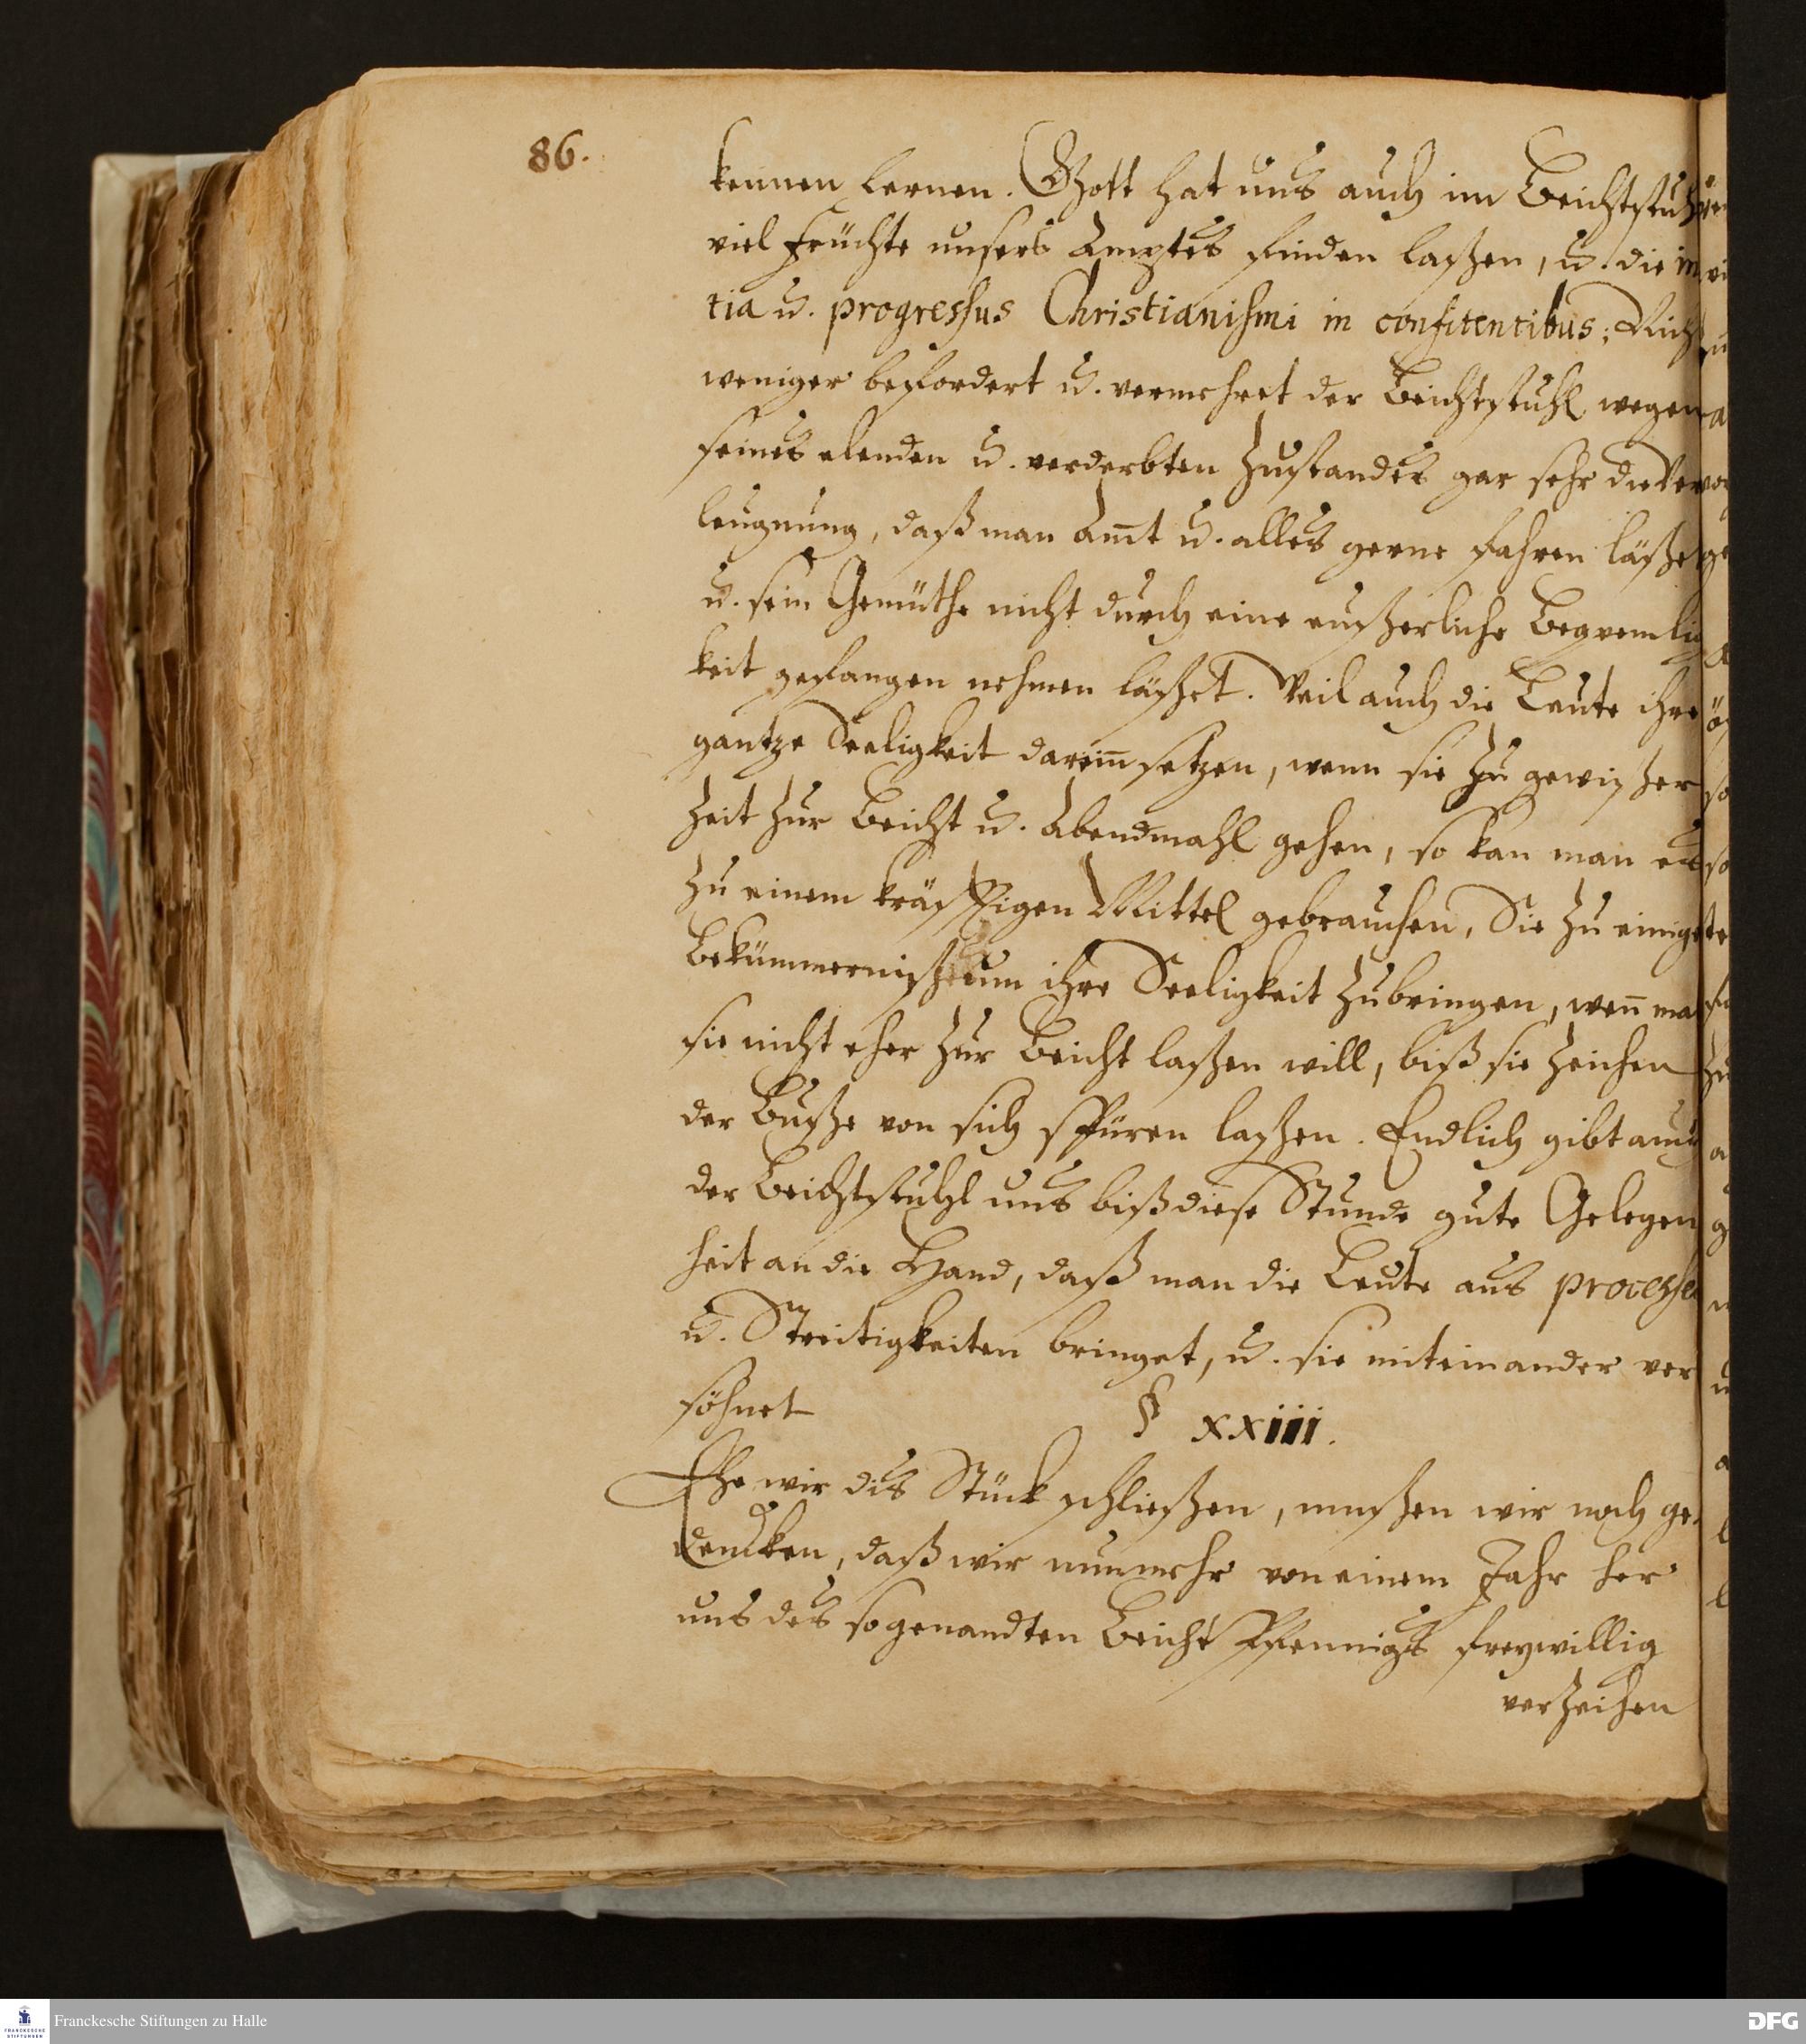 86.
kennen lernen. Gott hat uns auch im Beichtstuhl
viel Früchte unsers Amptes finden laßen, u. die ini
tia u. progressus Christianismi in confitentibus; Nicht
weniger befordert u. vermehret der Beichtstuhl wegen
seines elenden u. verderbten Zustandes gar sehr die Ver
leugnung, daß man Am̄t u. alles gerne fahren läße
u. sein Gemüthe nicht durch eine eußerliche Beqvemlig
keit gefangen nehmen läßet. Weil auch die Leute ihre
gantze Seeligkeit darein̄ setzen, wenn sie zu gewißer
Zeit zur Beicht u. Abendmahl gehen, so kan man es
zu einem kräfftigen Mittel gebrauchen, Sie zu einiger
Bekümmerniß um ihre Seeligkeit zubringen, wen̄ man
sie nicht eher zur Beicht laßen will, biß sie Zeichen
der Buße von sich spüren laßen. Endlich gibt auch
der Beichtstuhl uns biß diese Stunde gute Gelegen
heit an die Hand, daß man die Leute aus processen
u. Streitigkeiten bringet, u. sie miteinander ver
söhnet
§ xxiiii.
Ehe wir dis Stück schließen, mußen wir noch ge-
dencken, daß wir nunmehr von einem Jahr her
uns des sogenandten Beicht Pfennigs freywillig
verzeihen
FRANCKESCHE
STIFTUNGEN
Franckesche Stiftungen zu Halle
DFG